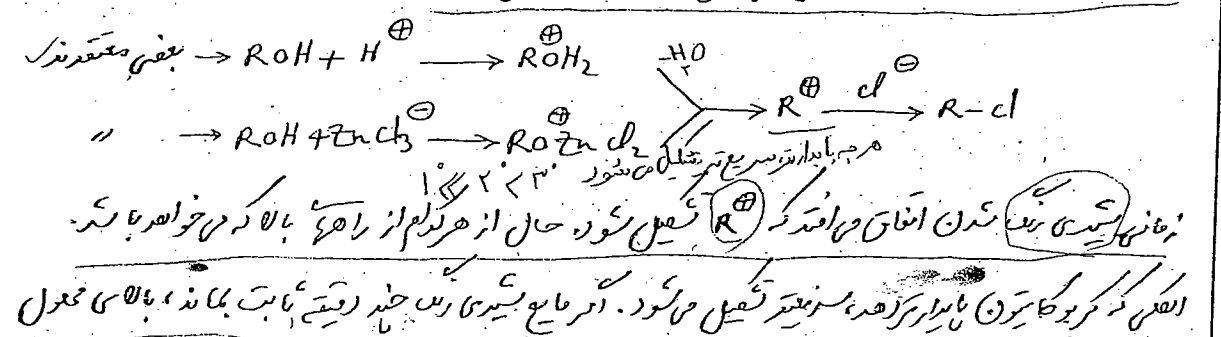 بعضی معتقدند → ROH + H⊕ → RO⊕H2
-H2O
〃 → ROH + ZnCl3⊖ → RO⊕ZnCl2 → R⊕ Cl⊖ → R-Cl
هرچه پایدارتر سریع‌تر تشکیل می‌شود 1° << 2° < 3°
زمانی شیری رنگ شدن اتفاق می‌افتد که R⊕ تشکیل شود. حال از هر کدام از راههای بالا که می‌خواهد باشد.
الکلی که کربوکاتیون پایدارتر دهد، سریعتر تشکیل می‌شود. اگر مایع شیری رنگ چند دقیقه ثابت بماند، بالای محلول